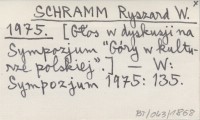 SCHRAMM Ryszard W.
1975. [Głos w dyskusji na
Sympozjum "Góry w kultu-
rze polskiej".] — W:
Sympozjum 1975: 135.